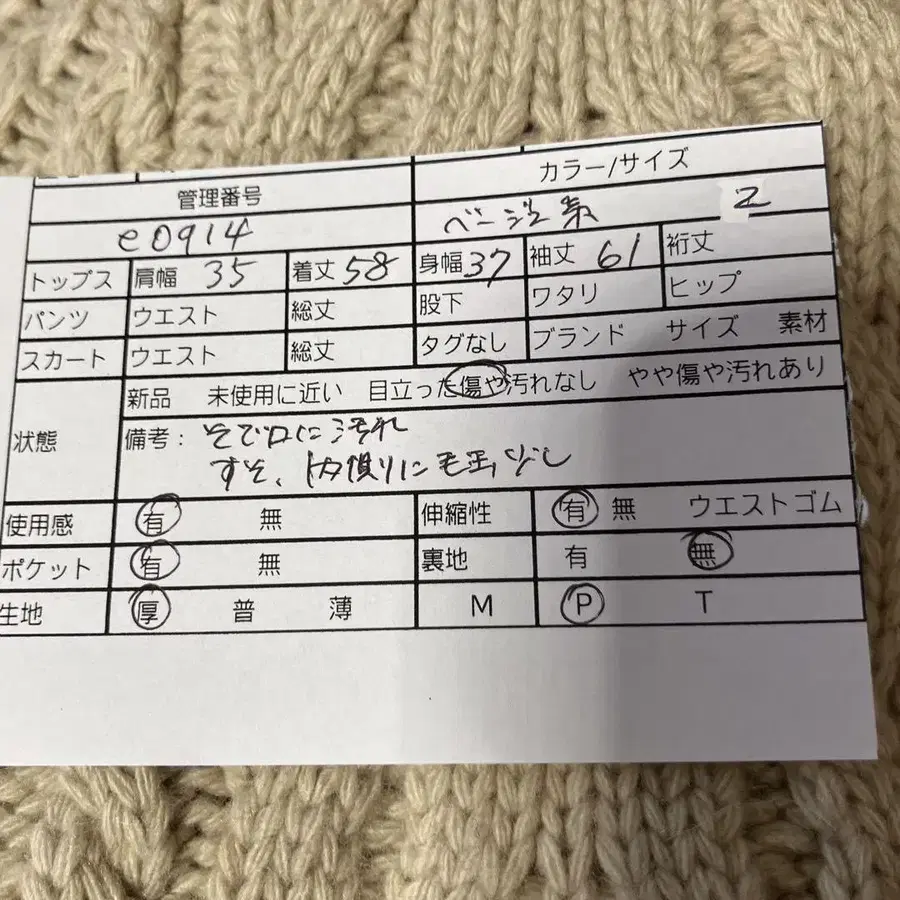 カラー/サイズ
管理番号
e0914 ベージュ系 2
トップス 肩幅 35 着丈 58 身幅 37 袖丈 61 裄丈
パンツ ウエスト 総丈 股下 ワタリ ヒップ
スカート ウエスト 総丈 タグなし ブランド サイズ 素材
状態 新品 未使用に近い 目立った傷や汚れなし やや傷や汚れあり
備考: そで口に汚れ
すそ、内側りに毛玉少し
使用感 有 無 伸縮性 有 無 ウエストゴム
ポケット 有 無 裏地 有 無
生地 厚 普 薄 M P T